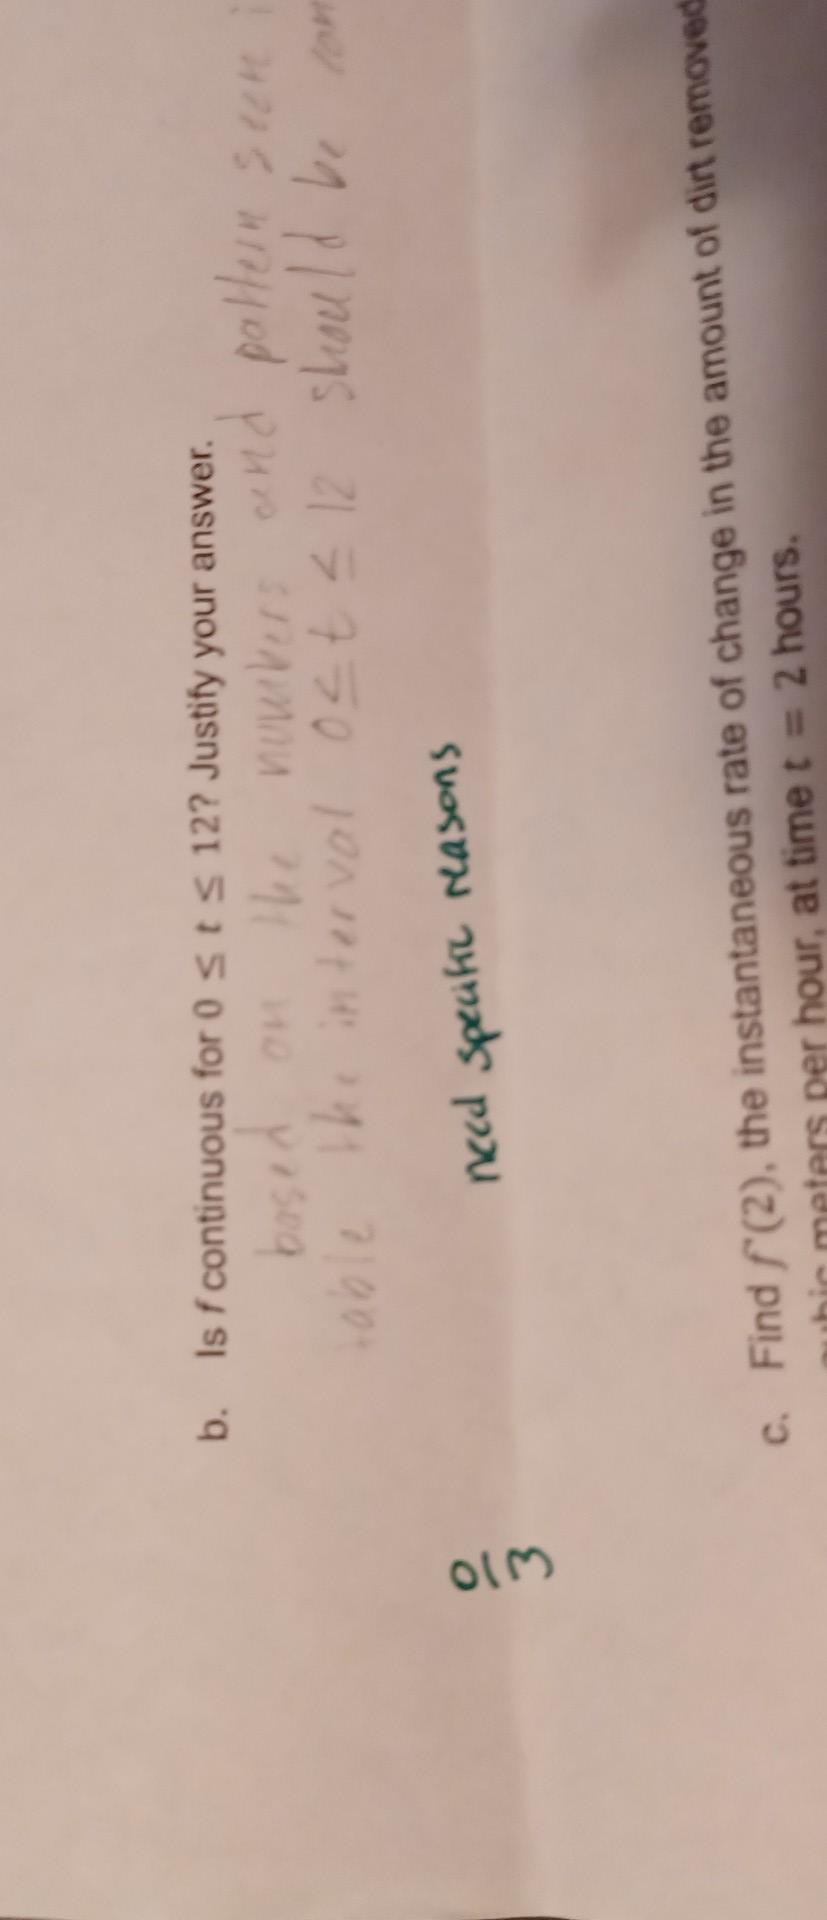 b. Is f continuous for 0 ≤ t ≤ 12? Justify your answer.
based on the numbers and pattern seen
table the interval 0 ≤ t ≤ 12 should be
need specific reasons
0/3
c. Find f'(2), the instantaneous rate of change in the amount of dirt removed
cubic meters per hour, at time t = 2 hours.